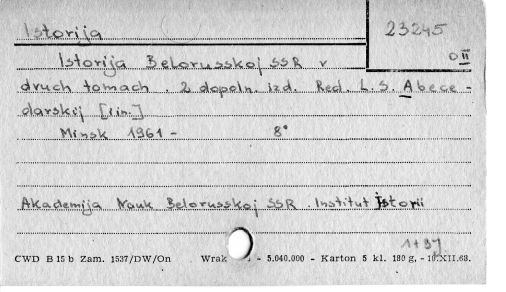 Istorija
23245
O II
Istorija Belorusskoj SSR v
druch tomach. 2 dopoln. izd. Red. L.S. Abece-
darskij [i in.]
Minsk 1961- 8°
Akademija Nauk Belorusskoj SSR. Institut istorii
1+3
CWD B 15 b Zam. 1537/DW/On Wrak - 5.040.000 - Karton 5 kl. 180 g, - 10.XII.68.